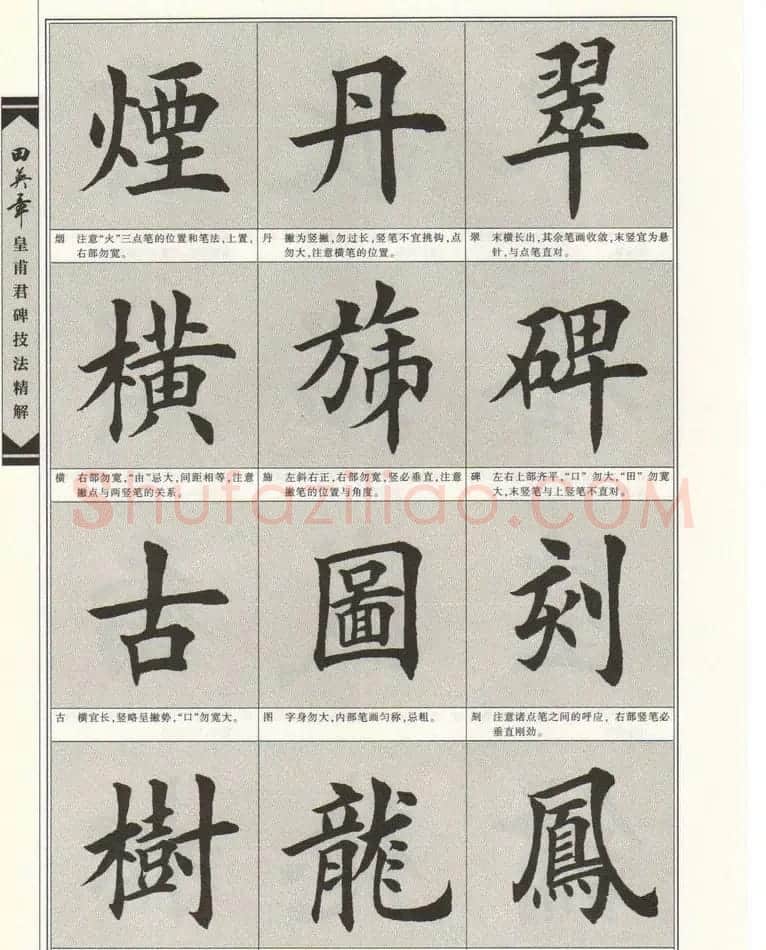 田英章
皇甫君碑技法精解
煙 丹 翠
烟 注意“火”三点笔的位置和笔法,上置,
右部勿宽。
丹 撇为竖撇,勿过长,竖笔不宜挑钩,点
勿大,注意横笔的位置。
翠 末横长出,其余笔画收敛,末竖宜为悬
针,与点笔直对。
横 旆 碑
横 右部勿宽,“由”忌大,间距相等,注意
撇点与两竖笔的关系。
旆 左斜右正,右部勿宽,竖必垂直,注意
撇笔的位置与角度。
碑 左右上部齐平,“口”勿大,“田”勿宽
大,末竖笔与上竖笔不直对。
Shufaziliao.COM
古 圖 刻
古 横宜长,竖略呈撇势,“口”勿宽大。
图 字身勿大,内部笔画匀称,忌粗。
刻 注意诸点笔之间的呼应,右部竖笔必
垂直刚劲。
樹 龍 鳳